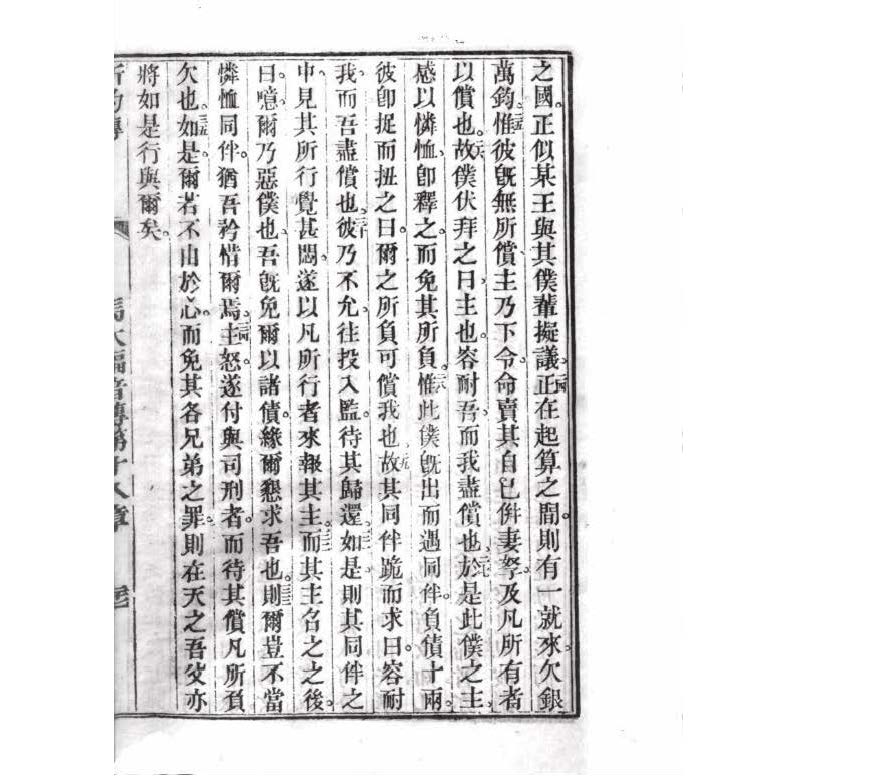 之國。正似某王與其僕輩擬議。正在起算之間。則有一就來。欠銀
萬鈞。惟彼旣無所償、主乃下令。命賣其自己倂妻孥。及凡所有者
以償也。故僕伏拜之曰、主也。容耐吾、而我盡償也、於是此僕之主、
感以憐恤、卽釋之。而免其所負。惟此僕旣出而遇同伴。負債十兩。
彼卽捉而扭之曰。爾之所負可償我也。故其同伴跪而求曰。容耐
我、而吾盡償也。彼乃不允、往投入監、待其歸還。如是、則其同伴之
中、見其所行、覺甚悶、遂以凡所行者來報其主。而其主名之之後。
曰、噫、爾乃惡僕也、吾旣免爾以諸債。緣爾懇求吾也。則爾豈不當
憐恤同伴。猶吾矜惜爾焉。主怒。遂付與司刑者。而待其償凡所負
欠也。如是、爾若不由於心。而免其各兄弟之罪。則在天之吾父亦
將如是行與爾矣。
馬太福音傳第十八章